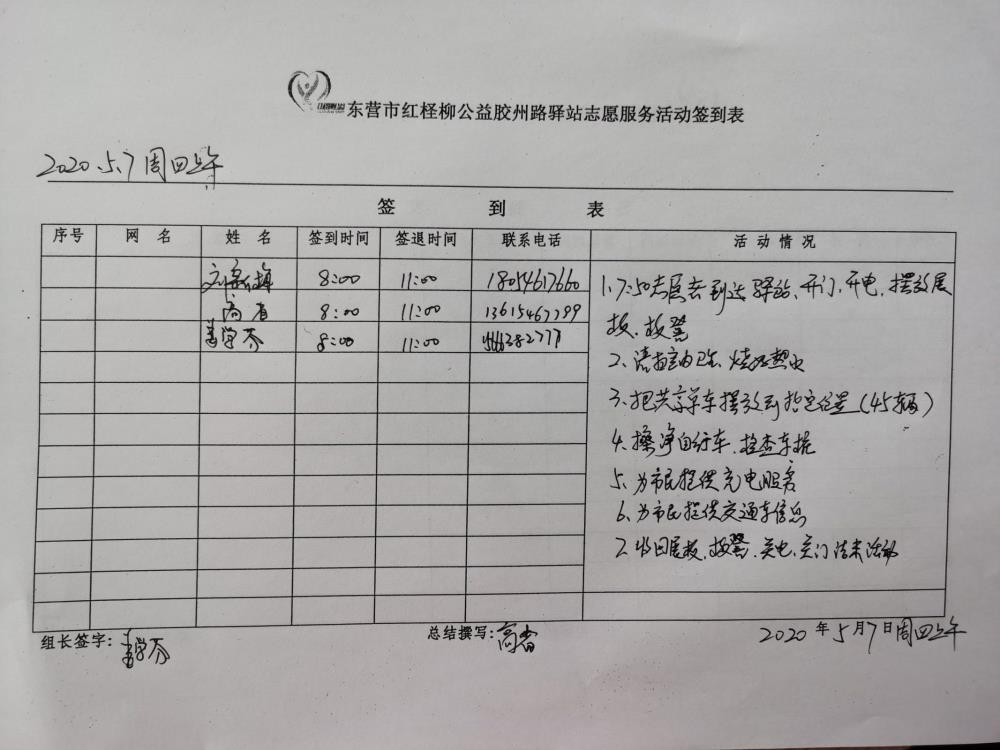 东营市红柽柳公益胶州路驿站志愿服务活动签到表
2020.5.7周四上午
签 到 表
序号 网 名 姓 名 签到时间 签退时间 联系电话 活动情况
8:00 11:00 18054617660
高省 8:00 11:00 13615467799
姜学芬 8:00 11:00
1、7:50志愿者到达驿站、开门、开电、摆放展
板、板凳
2、清扫室内卫生、烧好热水
3、把共享单车摆放到指定位置(45辆)
4、擦净自行车、检查车把
5、为市民提供充电服务
6、为市民提供交通车信息
7、收回展板、板凳、关电、关门结束活动
组长签字:姜学芬 总结撰写:高省 2020年5月7日周四上午